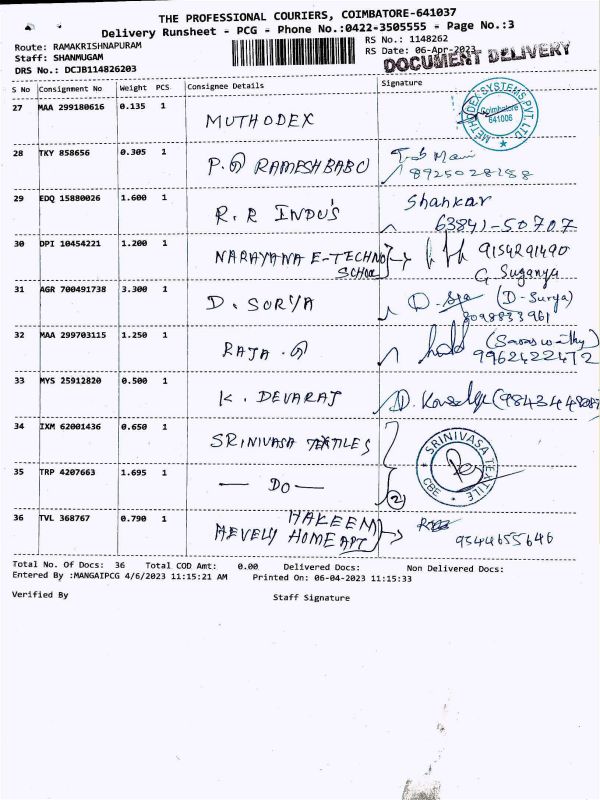 THE PROFESSIONAL COURIERS, COIMBATORE-641037
Delivery Runsheet - PCG - Phone No.:0422-3505555 - Page No.:3
Route: RAMAKRISHNAPURAM
RS No.: 1148262
Staff: SHANMUGAM
RS Date: 06-Apr-2023
DRS No.: DCJB114826203
DOCUMENT DELIVERY
S No Consignment No Weight PCS Consignee Details Signature
27 MAA 299180616 0.135 1 MUTHODEX
METHODEX SYSTEMS PVT. LTD. Coimbatore 641006
28 TKY 858656 0.305 1 P. RAMESH BABU
8925028188
29 EDQ 15880026 1.600 1 R.R INDU'S Shankar
63841-50707
30 DPI 10454221 1.200 1 NARAYANA E-TECHNO 9154291490
SCHOOL G Suganya
31 AGR 700491738 3.300 1 D. SURYA (D-Surya)
8098833961
32 MAA 299703115 1.250 1 RAJA. (Saraswathy)
9962422472
33 MYS 25912820 0.500 1 K. DEVARAJ
34 IXM 62001436 0.650 1 SRINIVASA TEXTILES
SRINIVASA TEXTILE CBE
35 TRP 4207663 1.695 1 — DO — 2
36 TVL 368767 0.790 1 HAKEEM
HEVELY HOME APT 9544655646
Total No. Of Docs: 36 Total COD Amt: 0.00 Delivered Docs: Non Delivered Docs:
Entered By :MANGAIPCG 4/6/2023 11:15:21 AM Printed On: 06-04-2023 11:15:33
Verified By Staff Signature